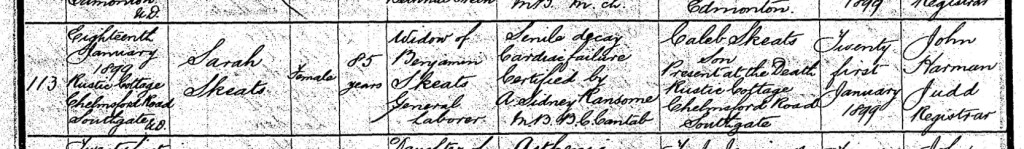 Edmonton
U.D.
M.B. M. ch.
Edmonton.
1899
Registrar
113
Eighteenth
January
1899
Rustic Cottage
Chelmsford Road
Southgate
U.D.
Sarah
Skeats
Female
85
years
Widow of
Benjamin
Skeats
General
Laborer
Senile decay
Cardiac failure
Certified by
A. Sidney Ransome
M.B. B.C. Cantab
Caleb Skeats
Son
Present at the Death
Rustic Cottage
Chelmsford Road
Southgate
Twenty
first
January
1899
John
Harman
Judd
Registrar
Daughter of